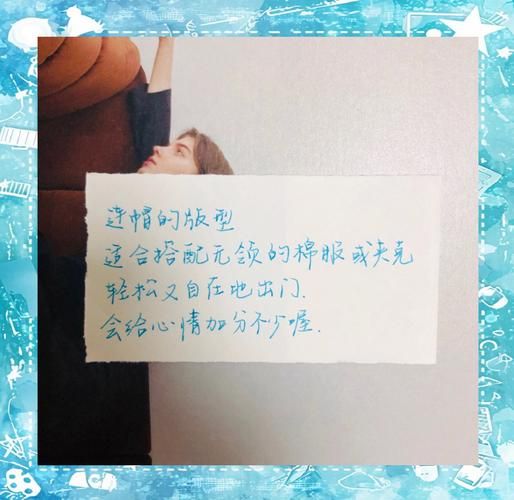 连帽的版型
适合搭配无领的棉服或夹克
轻松又自在地出门.
会给心情加分不少喔.